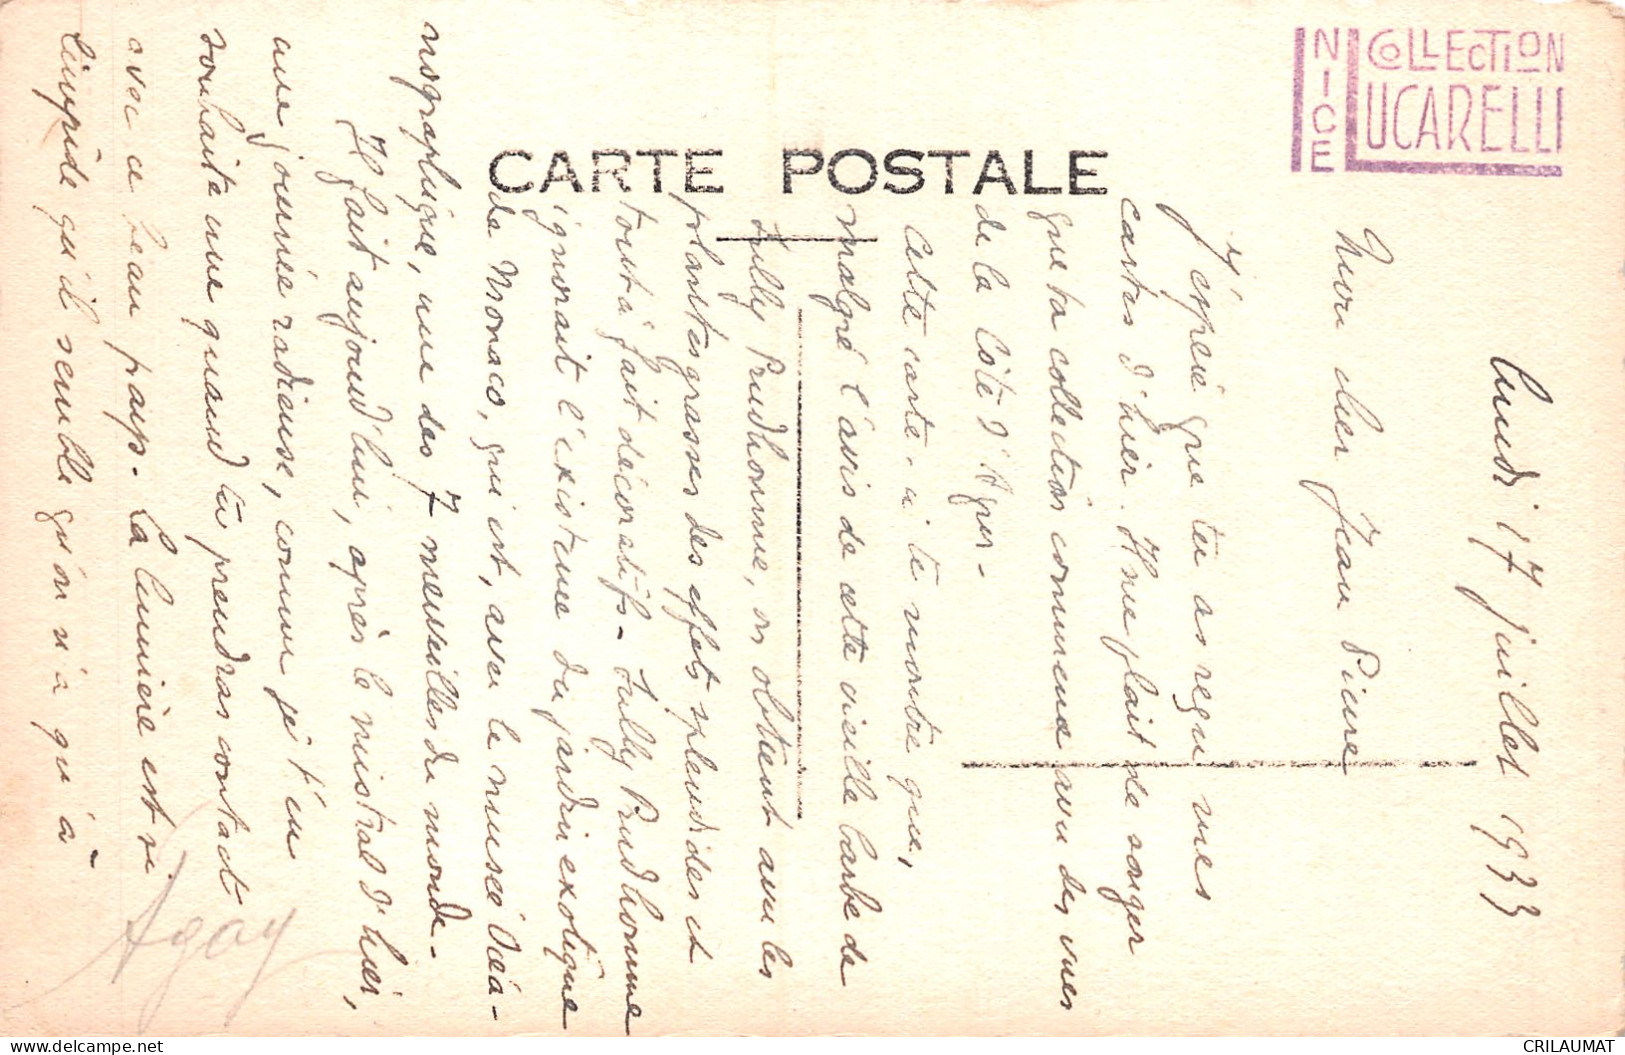 CARTE POSTALE
NICE
COLLECTION
LUCARELLI
Lundi 17 juillet 1933
Mon cher Jean Pierre
J'espère que tu as reçu mes
cartes d'hier. Il me plait de songer
que ta collection commence avec des vues
de la Côte d'Azur -
Cette carte-ci te montre que,
malgré l'avis de cette vieille barbe de
Sully Prudhomme, on obtient avec les
plantes grasses des effets splendides et
tout à fait décoratifs - Sully Prudhomme
ignorait l'existence du jardin exotique
de Monaco, qui est, avec le musée océa-
nographique, une des 7 merveilles du monde -
Il fait aujourd'hui, après le mistral d'hier,
une journée radieuse, comme je t'en
souhaite une quand tu prendras contact
avec ce beau pays - La lumière est si
limpide qu'il semble qu'on n'a qu'à
Agay
CRILAUMAT